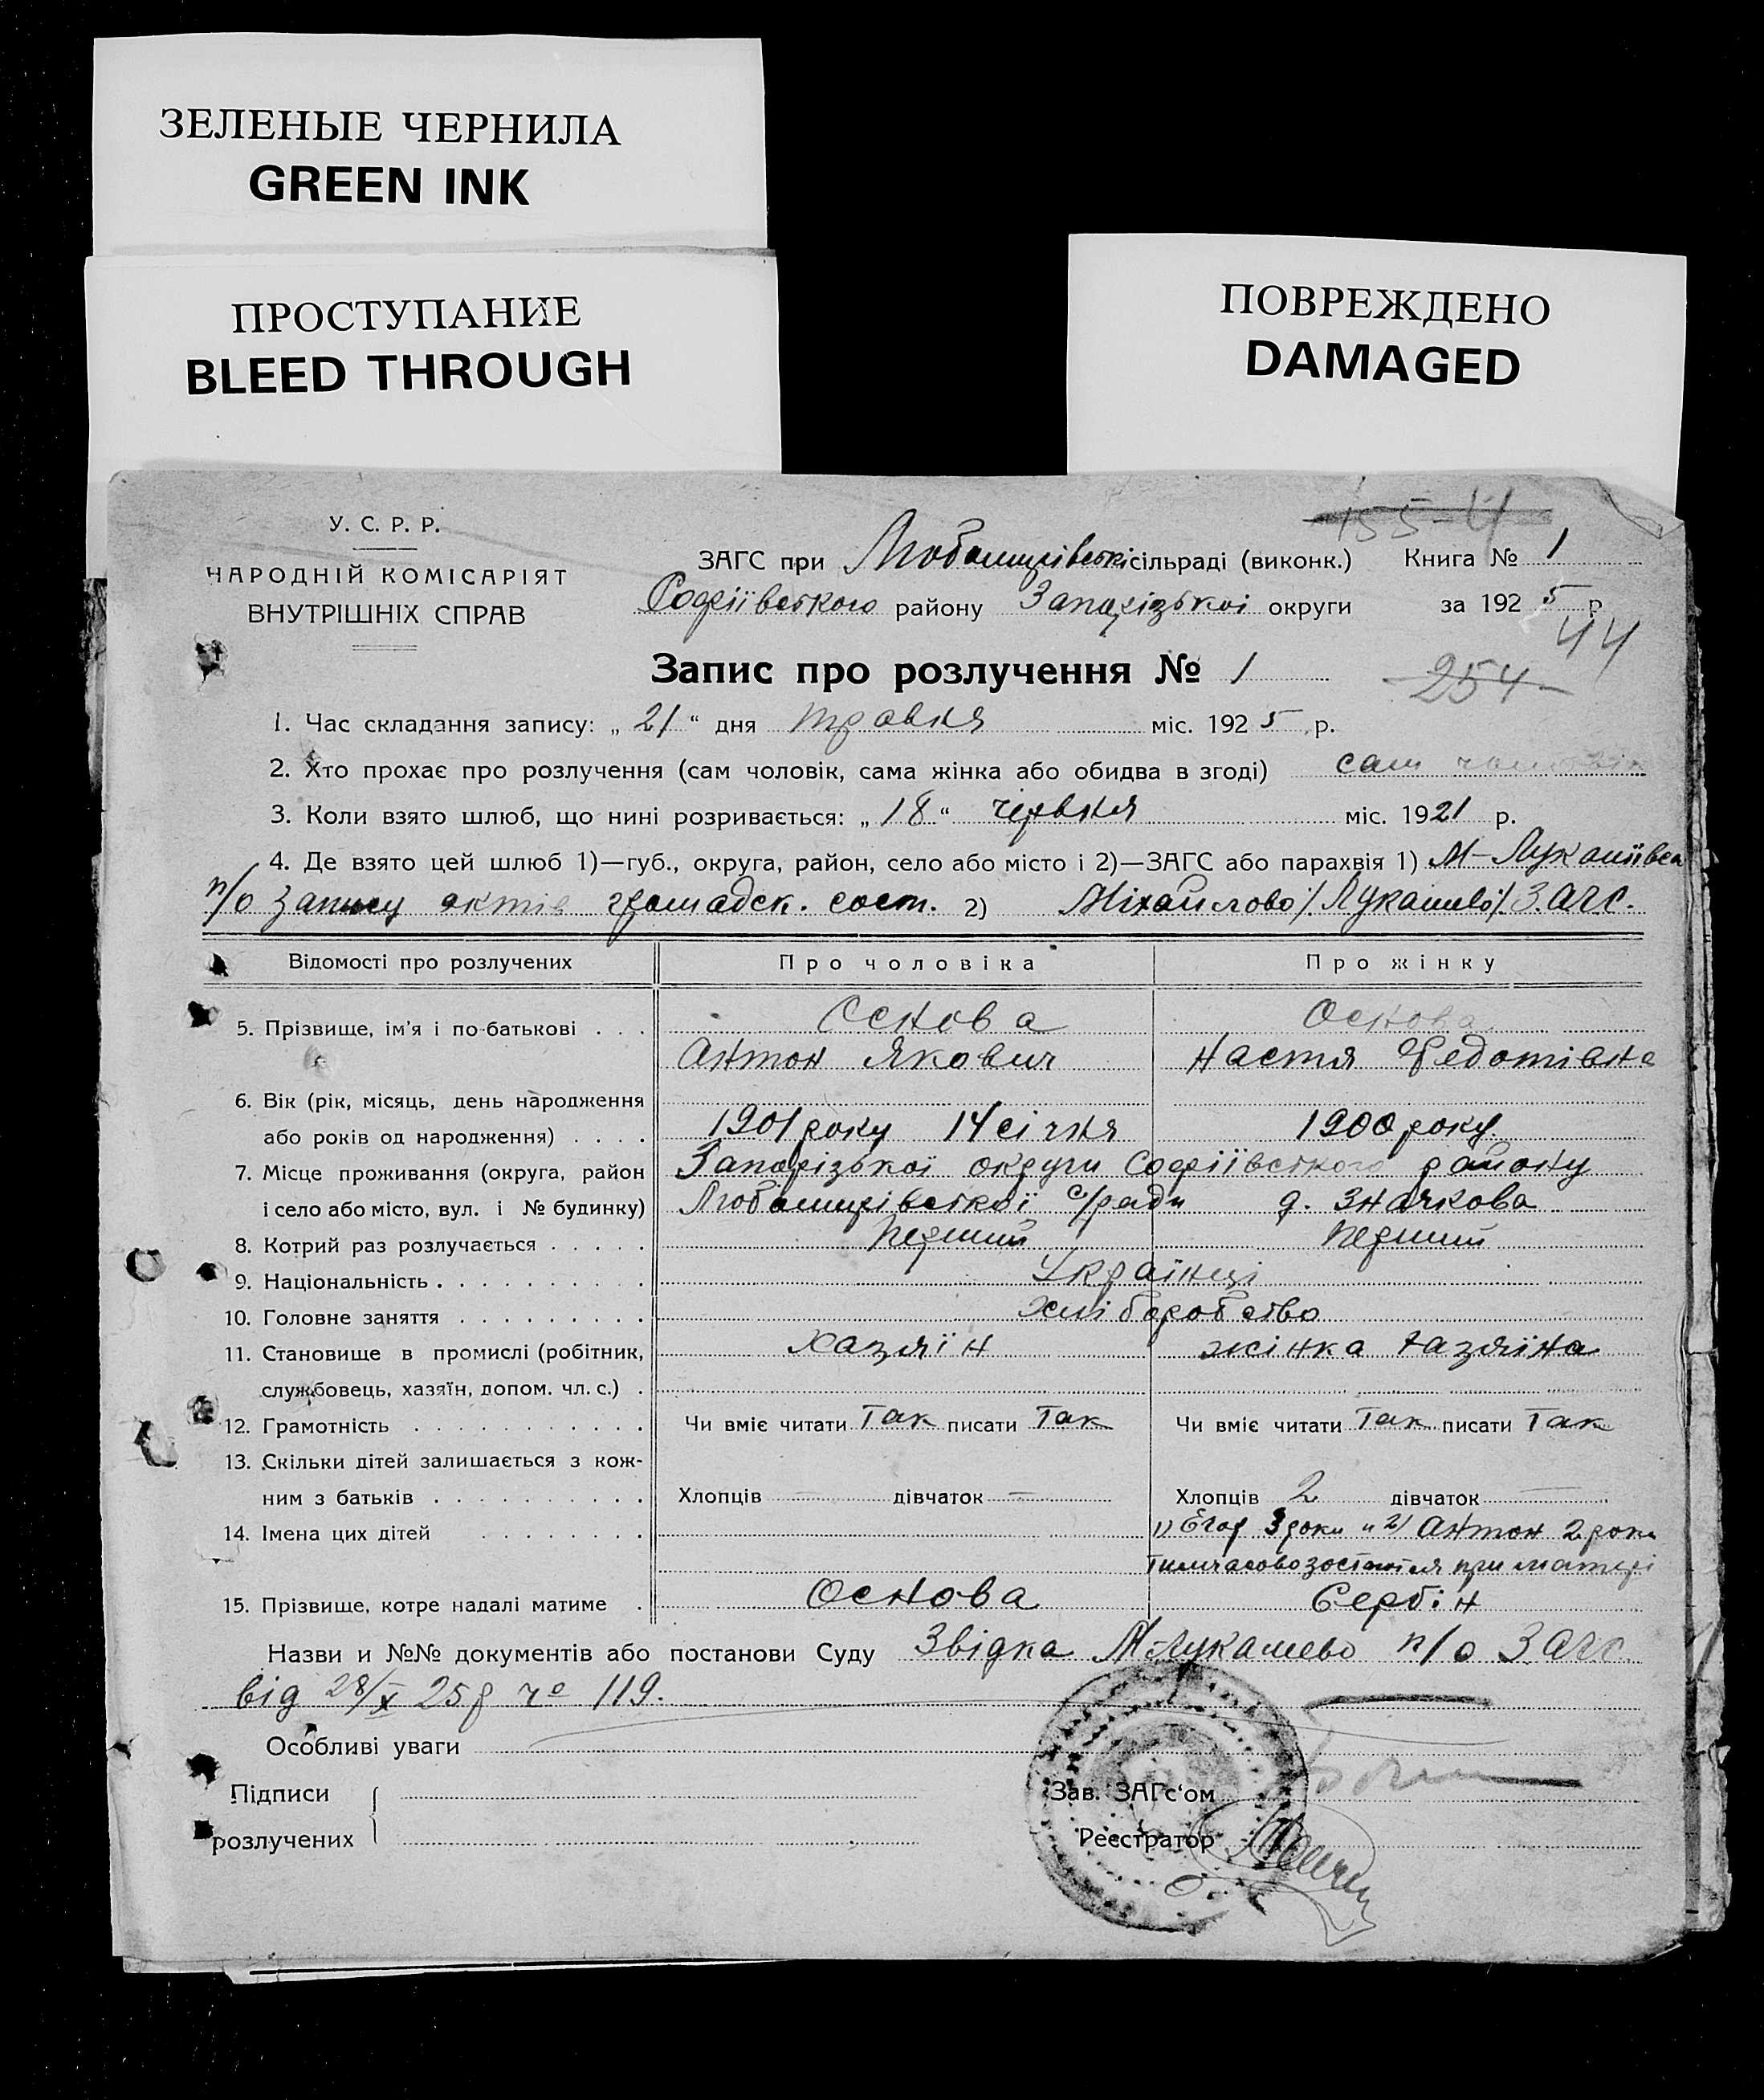 ЗЕЛЕНЫЕ ЧЕРНИЛА
GREEN INK
ПРОСТУПАНИЕ
BLEED THROUGH
ПОВРЕЖДЕНО
DAMAGED
155-4
У. С. Р. Р.
НАРОДНІЙ КОМІСАРІЯТ
ВНУТРІШНІХ СПРАВ
ЗАГС при Любомирівській сільраді (виконк.) Книга № 1
Софіївського району Запорізької округи за 1925 р.
44
Запис про розлучення № 1
254
1. Час складання запису: „ 21 “ дня травня міс. 1925 р.
2. Хто прохає про розлучення (сам чоловік, сама жінка або обидва в згоді) сам чоловік
3. Коли взято шлюб, що нині розривається: „ 18 “ червня міс. 1921 р.
4. Де взято цей шлюб 1)—губ., округа, район, село або місто і 2)—ЗАГС або парахвія 1) М-Лукашівськ
п/о Запису актів громадск. сост. 2) Міхайлово/Лукашево/. З.АГС.
Відомості про розлучених Про чоловіка Про жінку
5. Прізвище, ім'я і по-батькові . . . Основа Основа
Антон Якович Настя Федотівна
6. Вік (рік, місяць, день народження
або років од народження) . . . . 1901 року 14 січня 1900 року
7. Місце проживання (округа, район Запорізької округи Софіївського району
і село або місто, вул. і № будинку) Любомирівської с/ради д. Значкова
8. Котрий раз розлучається . . . . . Перший Перший
9. Національність . . . . . . . . . . Українці
10. Головне заняття . . . . . . . . . Хліборобство
11. Становище в промислі (робітник, Хазяїн жінка хазяїна
службовець, хазяїн, допом. чл. с.) .
12. Грамотність . . . . . . . . . . . Чи вміє читати Так писати Так Чи вміє читати Так писати Так
13. Скільки дітей залишається з кож-
ним з батьків . . . . . . . . . . Хлопців — дівчаток — Хлопців 2 дівчаток —
14. Імена цих дітей . . . . . . . . 1) Егор 3 роки и 2) Антон 2 роки
тимчасово зостаються при матері
15. Прізвище, котре надалі матиме . Основа Сербін
Назви и №№ документів або постанови Суду Звідка М-Лукашево п/о З.АГС.
від 28/X 25 р. № 119.
Особливі уваги
Підписи
розлучених
Зав. ЗАГс'ом
Реєстратор